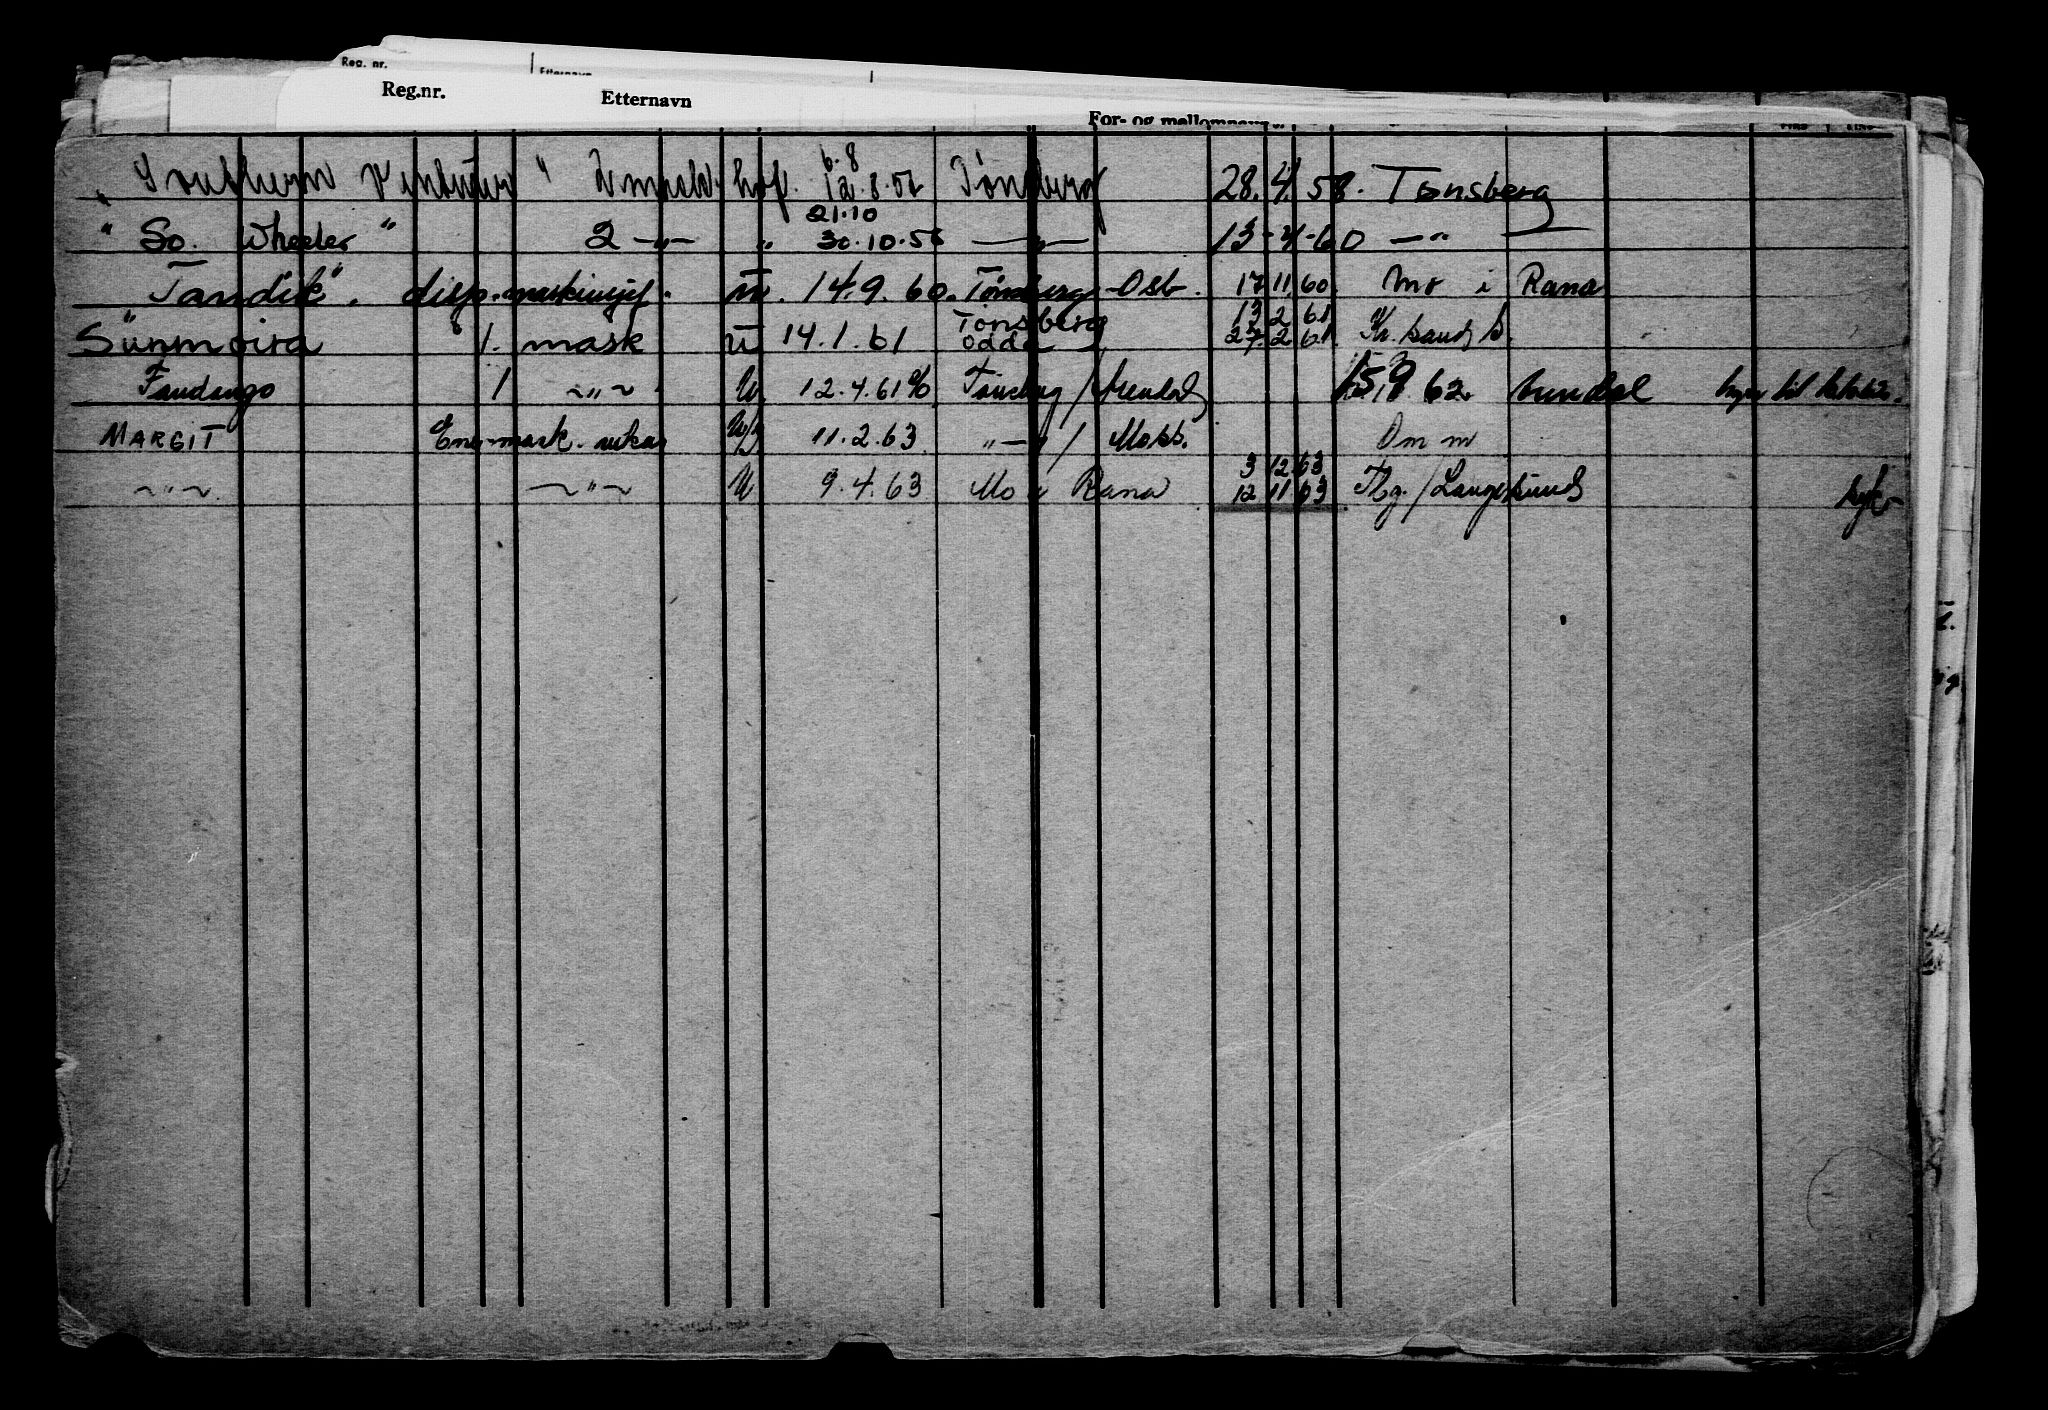 Reg. nr. Etternavn
Reg.nr. Etternavn For- og mellomnavn
6.8
" Southern Venturer " 2 mask. hvf. Tønsberg 28. 4. 58. Tønsberg
21.10
" So. Wheeler " 2 —"— " 30.10.5 —"— 13-4-60 —"—
"Tandik". disp. maskinsjef. U. 14.9.60. Tønsberg - Osb. 17 11 60 Mo i Rana
Tønsberg 13 2 61
Sunmoira 1. mask U 14.1.61 Odda 27.2 61. Kr. sand S.
Fandango 1 —"— U. 12.4.61 Tønsberg / Arendal 15.9 62. Arendal
MARGIT Ene-mask. vikar 11.2.63 "—" / Moss. Om m
3 12 63
—"— —"— U 9.4.63 Mo i Rana 12 11 63 Tbg. / Langesund